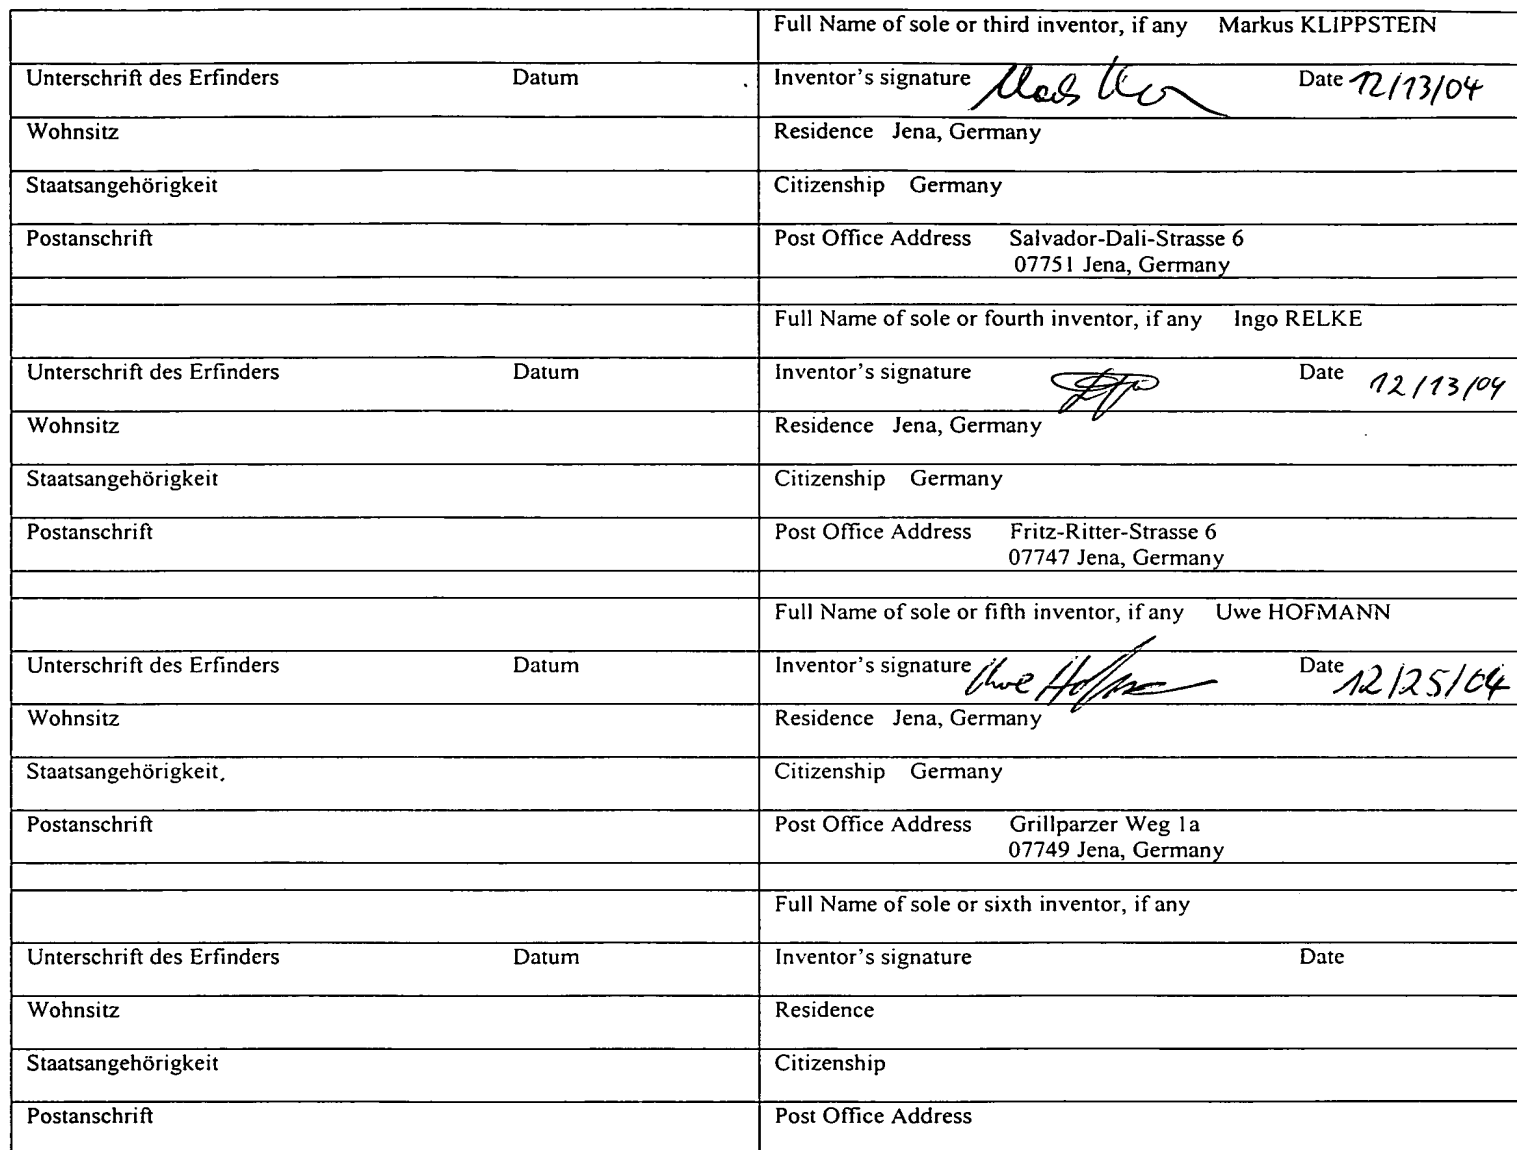 Full Name of sole or third inventor, if any Markus KLIPPSTEIN
Unterschrift des Erfinders Datum Inventor's signature Date 12/13/04
Wohnsitz Residence Jena, Germany
Staatsangehörigkeit Citizenship Germany
Postanschrift Post Office Address Salvador-Dali-Strasse 6
07751 Jena, Germany
Full Name of sole or fourth inventor, if any Ingo RELKE
Unterschrift des Erfinders Datum Inventor's signature Date 12/13/04
Wohnsitz Residence Jena, Germany
Staatsangehörigkeit Citizenship Germany
Postanschrift Post Office Address Fritz-Ritter-Strasse 6
07747 Jena, Germany
Full Name of sole or fifth inventor, if any Uwe HOFMANN
Unterschrift des Erfinders Datum Inventor's signature Uwe Date 12/25/04
Wohnsitz Residence Jena, Germany
Staatsangehörigkeit Citizenship Germany
Postanschrift Post Office Address Grillparzer Weg 1a
07749 Jena, Germany
Full Name of sole or sixth inventor, if any
Unterschrift des Erfinders Datum Inventor's signature Date
Wohnsitz Residence
Staatsangehörigkeit Citizenship
Postanschrift Post Office Address